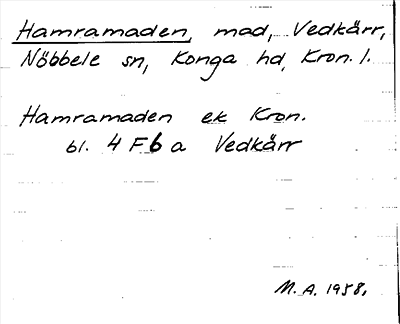 Hamramaden, mad, Vedkärr,
Nöbbele sn, Konga hd, Kron. l.
Hamramaden ek Kron.
bl. 4 F 6 a Vedkärr
M. A. 1958.